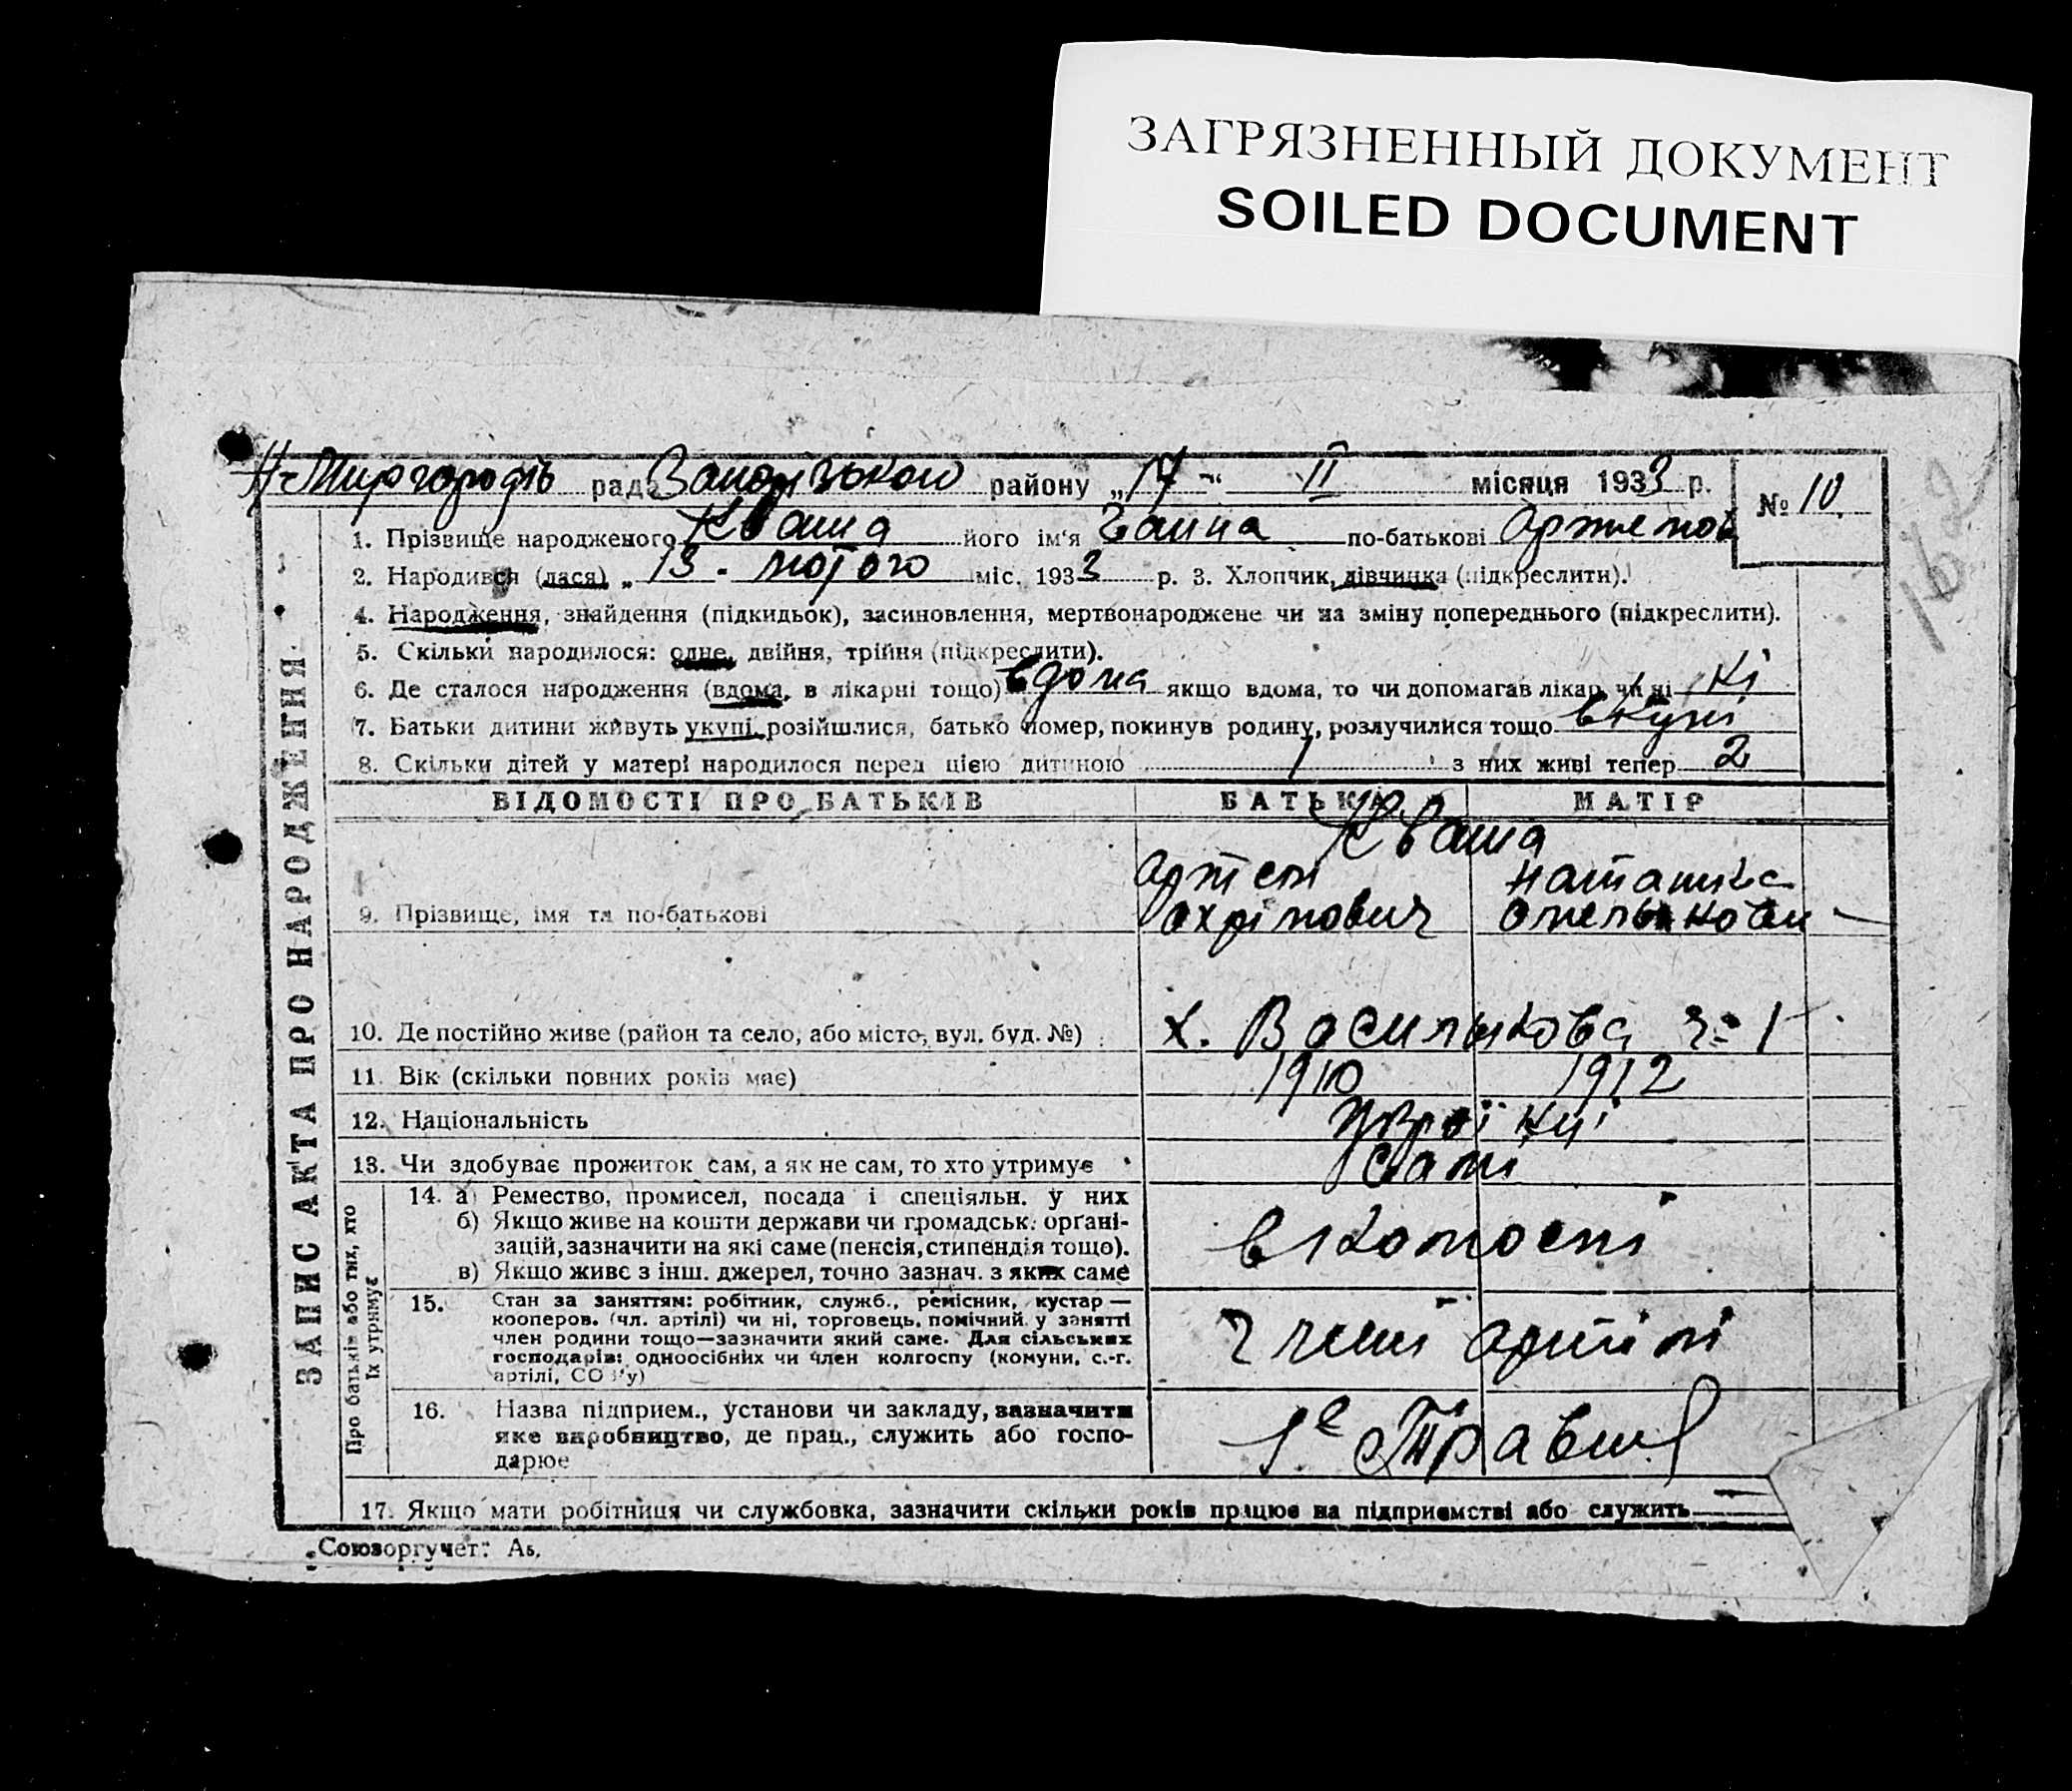 ЗАГРЯЗНЕННЫЙ ДОКУМЕНТ
SOILED DOCUMENT
Н-Миргородів рада Запорізького району „17“ II місяця 1933 р.
№ 10
162
ЗАПИС АКТА ПРО НАРОДЖЕННЯ
1. Прізвище народженого Кваша його ім'я Ганна по-батькові Артемов
2. Народився (лася) „13 - лютого міс. 1933 р. 3. Хлопчик, дівчинка (підкреслити).
4. Народження, знайдення (підкидьок), засиновлення, мертвонароджене чи на зміну попереднього (підкреслити).
5. Скільки народилося: одне, двійня, трійня (підкреслити).
6. Де сталося народження (вдома, в лікарні тощо) вдома якщо вдома, то чи допомагав лікар, чи ні Ні
7. Батьки дитини живуть укупі, розійшлися, батько помер, покинув родину, розлучилися тощо вкупі
8. Скільки дітей у матері народилося перед цією дитиною 1 з них живі тепер 2
ВІДОМОСТІ ПРО БАТЬКІВ БАТЬКА МАТІР
Кваша
Артем Наташка
9. Прізвище, імя та по-батькові Охрімович Омельковн
10. Де постійно живе (район та село, або місто, вул. буд. №) х. Василькова
11. Вік (скільки повних років має) 1910 1912
12. Національність Українці
13. Чи здобуває прожиток сам, а як не сам, то хто утримує Самі
Про батьків або тих, хто їх утримує
14. а) Ремество, промисел, посада і спеціяльн. у них
б) Якщо живе на кошти держави чи громадськ. органі-
зацій, зазначити на які саме (пенсія, стипендія тощо).
в) Якщо живе з інш. джерел, точно зазнач. з яких саме
в колгоспі
15. Стан за заняттям: робітник, служб., ремісник, кустар —
кооперов. (чл. артілі) чи ні, торговець, помічний у занятті
член родини тощо—зазначити який саме. Для сільських
господарів: одноосібних чи член колгоспу (комуни, с.-г.
артілі, СОЗ'у)
член артілі
16. Назва підприєм., установи чи закладу, зазначити
яке виробництво, де прац., служить або госпо-
дарює
1е Травня
17. Якщо мати робітниця чи службовка, зазначити скільки років працює на підприємстві або служить
Союзоргучет: Аб.